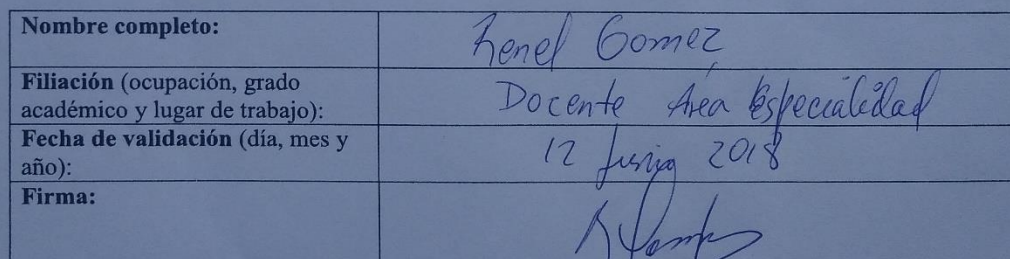 Nombre completo: Renel Gomez
Filiación (ocupación, grado
académico y lugar de trabajo): Docente Área Especialidad
Fecha de validación (día, mes y
año): 12 Junio 2018
Firma: